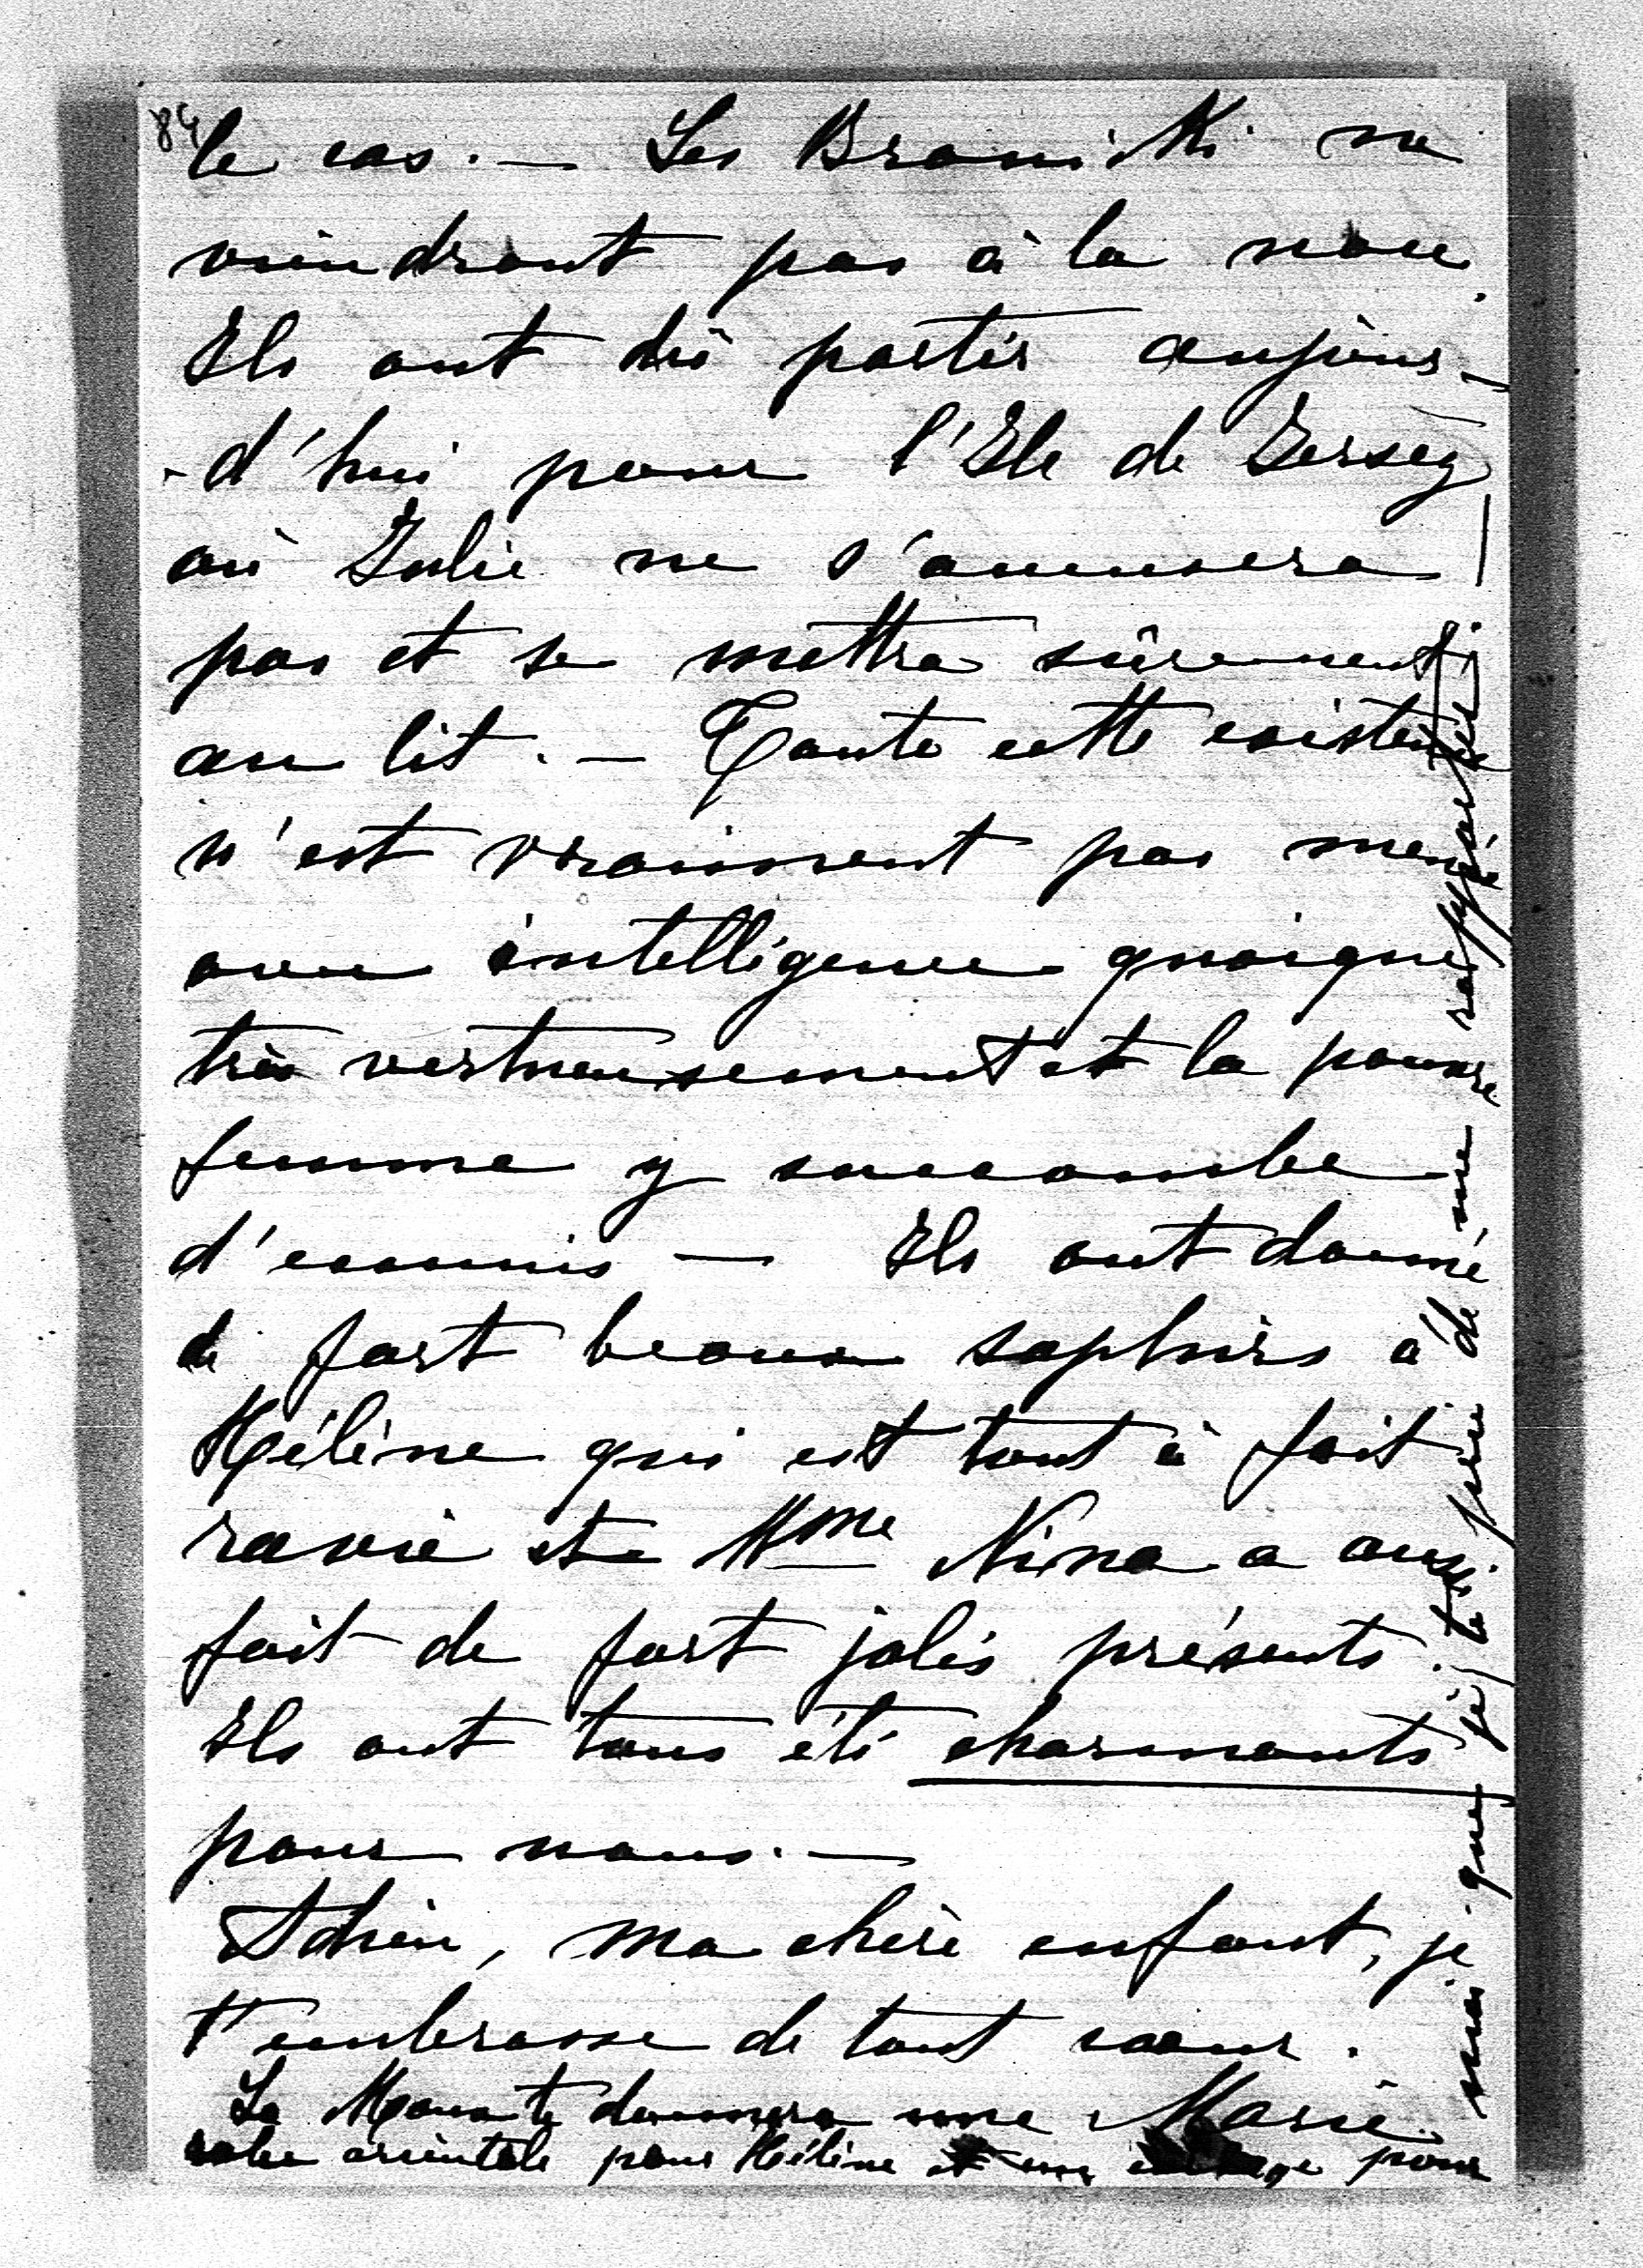 84
le cas. — Les Branitki ne
viendront pas à la noce.
Ils ont dû partir aujour-
-d'hui pour l'Ile de Jersey
où Julie ne s'amusera
pas et se mettra sûrement
au lit. — Toute cette existence
n'est vraiment pas menée
avec intelligence quoique
très vertueusement et la pauvre
femme y succombe
d'ennuis — Ils ont donné
de fort beaux saphirs à
Hélène qui est tout à fait
ravie et Mme Nina a aussi
fait de fort jolis présents.
Ils ont tous été charmants
pour nous. —
Adieu, ma chère enfant, je
t'embrasse de tout cœur.
Marie
La te donnera une
robe orientale pour Hélène et un pour
moi que je te prie de me rapporter. —